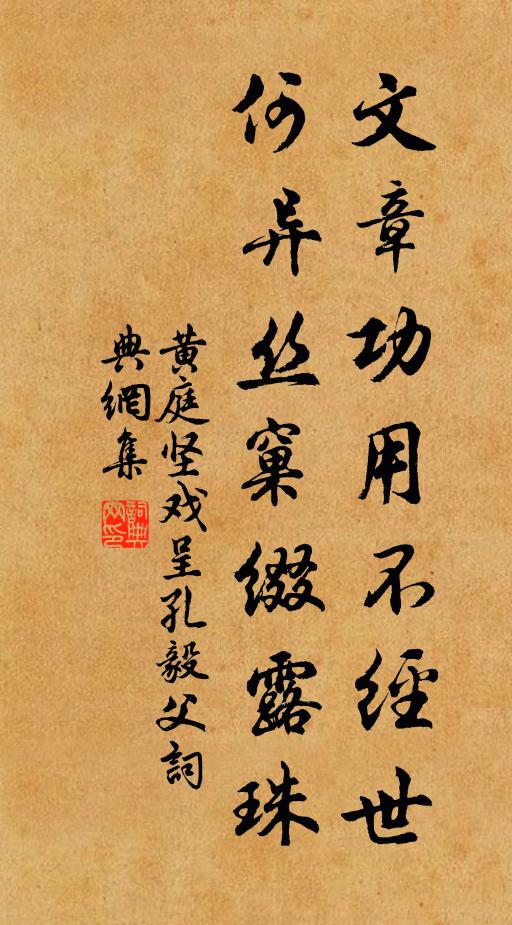 文章功用不經世
何异丝窠缀露珠
黄庭坚戏呈孔毅父詞
典網集
詞典網印